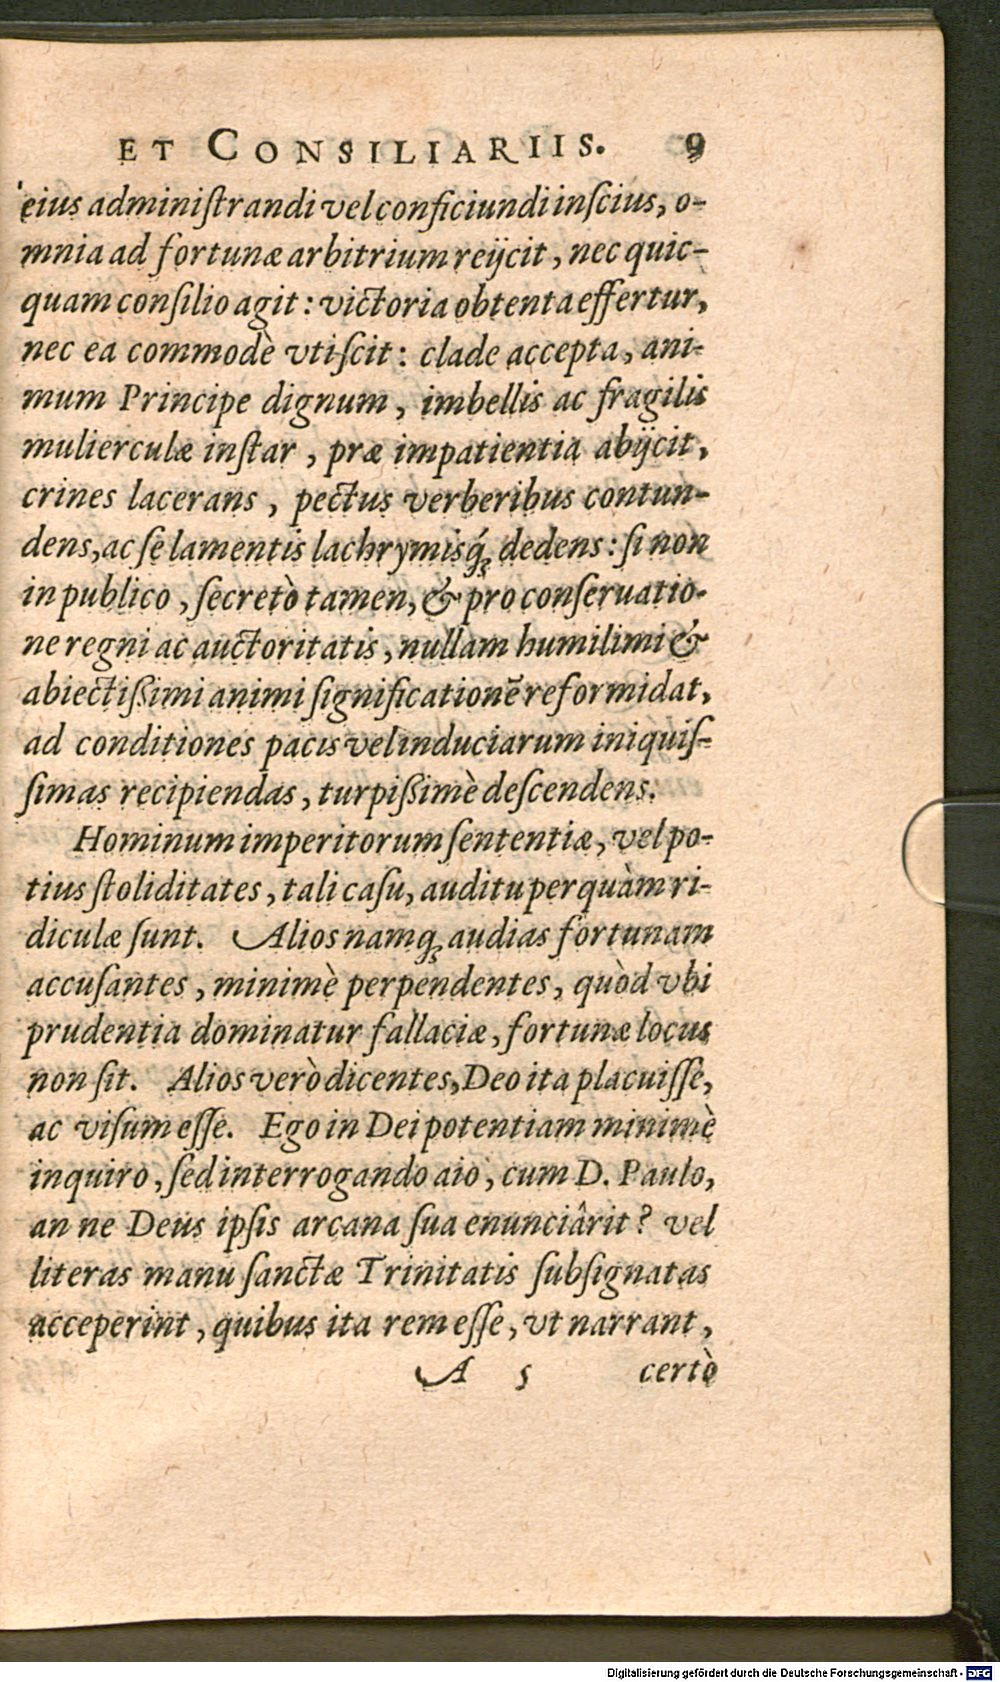 ET CONSILIARIIS. 9
eius adminiſtrandi vel conficiundi inſcius, o-
mnia ad fortunæ arbitrium reijcit, nec quic-
quam conſilio agit: victoria obtenta effertur,
nec ea commodè vti ſcit: clade accepta, ani-
mum Principe dignum, imbellis ac fragilis
mulierculæ inſtar, præ impatientia abijcit,
crines lacerans, pectus verberibus contun-
dens, ac ſe lamentis lachrymisq́ꝫ dedens: ſi non
in publico, ſecretò tamen, & pro conſeruatio-
ne regni ac auctoritatis, nullam humilimi &
abiectißimi animi ſignificationē reformidat,
ad conditiones pacis vel induciarum iniquiſ-
ſimas recipiendas, turpißimè deſcendens.
Hominum imperitorum ſententiæ, vel po-
tius ſtoliditates, tali caſu, auditu perquàm ri-
diculæ ſunt. Alios namqꝫ audias fortunam
accuſantes, minimè perpendentes, quòd vbi
prudentia dominatur fallaciæ, fortunæ locus
non ſit. Alios verò dicentes, Deo ita placuiſſe,
ac viſum eſſe. Ego in Dei potentiam minimè
inquiro, ſed interrogando aio, cum D. Paulo,
an ne Deus ipſis arcana ſua enunciârit? vel
literas manu ſanctæ Trinitatis ſubſignatas
acceperint, quibus ita rem eſſe, vt narrant,
A 5 certò
Digitalisierung gefördert durch die Deutsche Forschungsgemeinschaft - DFG